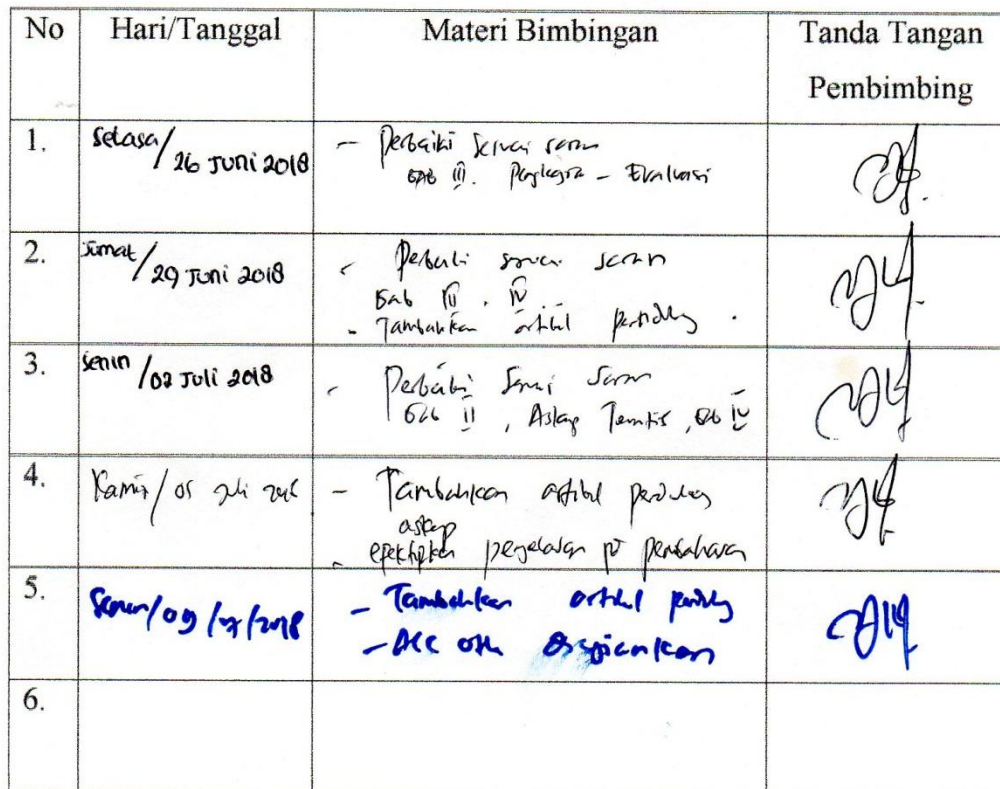 No Hari/Tanggal Materi Bimbingan Tanda Tangan
Pembimbing
1. Selasa/26 Juni 2018 - Perbaiki sesuai saran
BAB III. Pengkajian - Evaluasi
2. Jumat/29 Juni 2018 - Perbaiki sesuai saran
Bab III, IV
- Tambahkan artikel
3. Senin/02 Juli 2018 - Perbaiki sesuai saran
Bab II, Askep, Bab IV
4. Kamis/05 Juli 2018 - Tambahkan artikel
askep
- efektipkan pembahasan
5. Senin/09/07/2018 - Tambahkan artikel
- Acc
6.